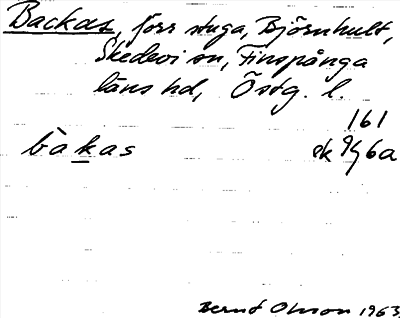 Backas, förr stuga, Björnhult,
Skedevi sn, Finspånga
läns hd, Östg. l.
161
bàkas ek 9/6a
Bernt Olsson 1963